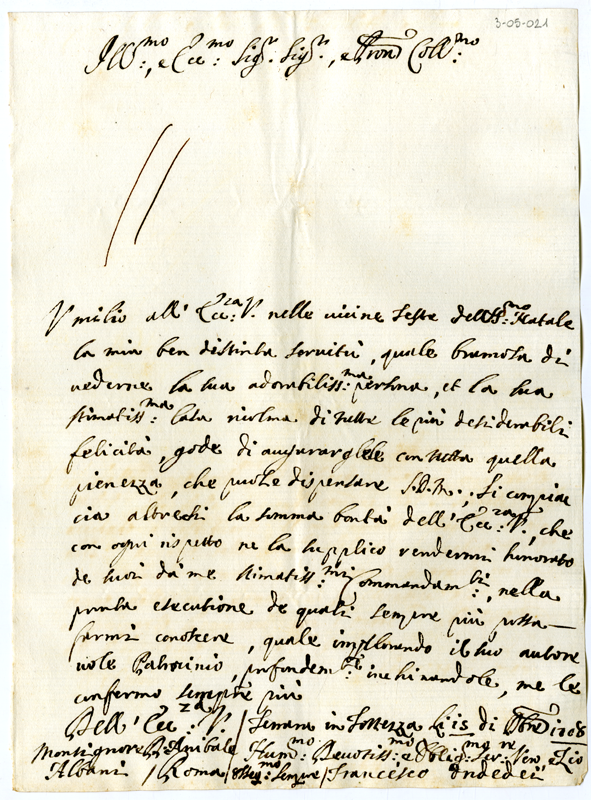 3-05-021
Ill:mo, e Ecc:mo Sig:r Sig:r, e Pron Coll:mo
Umilio all' Ecc:za V. nelle vicine feste del SS:mo Natale
la mia ben distinta servitù, quale bramosa di
vederne la sua adorabiliss:ma persona, et la sua
stimatiss:ma Casa ricolma di tutte le più desiderabili
felicità, gode di augurargliele con tutta quella
pienezza, che puole dispensare S.D.M.. Si compia
cia altresì la somma bontà dell' Ecc:za V., che
con ogni rispetto ne la supplico rendermi honorato
de suoi da me stimatiss:mi Commandam:ti, nella
pronta esecutione de quali sempre più possa
farmi conoscere, quale implorando il suo autore
vole Patrocinio, profondem:te inchinandole, me le
confermo sempre più
Dell' Ecc:za V. / Ferrara in Fortezza li 15 di Xbre 1708
Monsignore Annibale Hum:mo Devotiss:mo e Oblig:mo Ser:re Ven, e Zio
Albani / Roma / Osseq:mo sempre / Francesco Ondedei